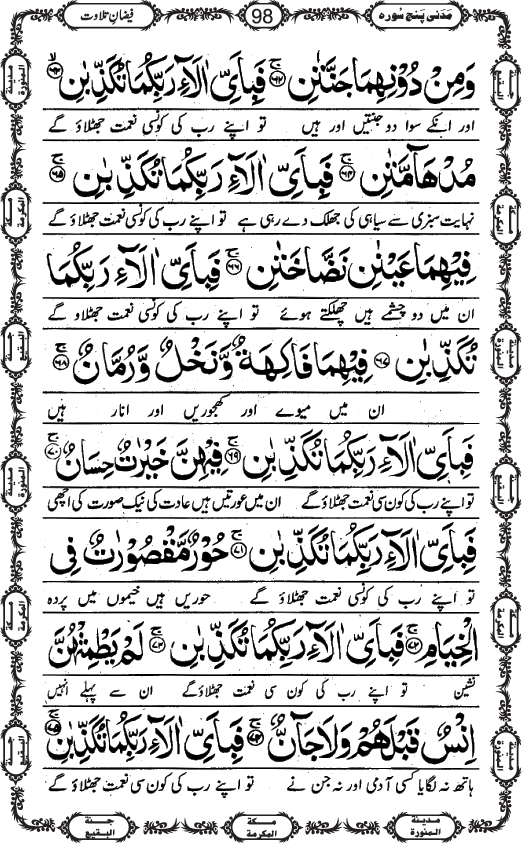 مَدَنی پَنج سُورہ
98
فیضانِ تلاوت
وَمِنْ دُوْنِهِمَا جَنَّتٰنِ ۚ﴿۶۲﴾ فَبِاَیِّ اٰلَآءِ رَبِّكُمَا تُكَذِّبٰنِ ۙ﴿۶۳﴾
اور انکے سوا دو جنتیں اور ہیں تو اپنے رب کی کونسی نعمت جھٹلاؤ گے
مُدْهَآ مَّتٰنِ ۚ﴿۶۴﴾ فَبِاَیِّ اٰلَآءِ رَبِّكُمَا تُكَذِّبٰنِ ۚ﴿۶۵﴾
نہایت سبزی سے سیاہی کی جھلک دے رہی ہے تو اپنے رب کی کونسی نعمت جھٹلاؤ گے
فِیْهِمَا عَیْنٰنِ نَضَّاخَتٰنِ ۚ﴿۶۶﴾ فَبِاَیِّ اٰلَآءِ رَبِّكُمَا
ان میں دو چشمے ہیں چھلکتے ہوئے تو اپنے رب کی کونسی نعمت جھٹلاو گے
تُكَذِّبٰنِ ﴿۶۷﴾ فِیْهِمَا فَاكِهَةٌ وَّنَخْلٌ وَّرُمَّانٌ ۚ﴿۶۸﴾
ان میں میوے اور کھجوریں اور انار ہیں
فَبِاَیِّ اٰلَآءِ رَبِّكُمَا تُكَذِّبٰنِ ۚ﴿۶۹﴾ فِیْهِنَّ خَیْرٰتٌ حِسَانٌ ۚ﴿۷۰﴾
تو اپنے رب کی کون سی نعمت جھٹلاؤ گے ان میں عورتیں ہیں عادت کی نیک صورت کی اچھی
فَبِاَیِّ اٰلَآءِ رَبِّكُمَا تُكَذِّبٰنِ ۚ﴿۷۱﴾ حُوْرٌ مَّقْصُوْرٰتٌ فِی
تو اپنے رب کی کونسی نعمت جھٹلاؤ گے حوریں ہیں خیموں میں پردہ
الْخِیَامِ ۚ﴿۷۲﴾ فَبِاَیِّ اٰلَآءِ رَبِّكُمَا تُكَذِّبٰنِ ۚ﴿۷۳﴾ لَمْ یَطْمِثْهُنَّ
نشین تو اپنے رب کی کون سی نعمت جھٹلاؤ گے ان سے پہلے انہیں
اِنْسٌ قَبْلَهُمْ وَلَا جَآنٌّ ۚ﴿۷۴﴾ فَبِاَیِّ اٰلَآءِ رَبِّكُمَا تُكَذِّبٰنِ ۚ﴿۷۵﴾
ہاتھ نہ لگایا کسی آدمی اور نہ جن نے تو اپنے رب کی کون سی نعمت جھٹلاؤ گے
جنة البقیع
مكة المكرمة
مدينة المنورة
جنة البقیع
مكة المكرمة
مدينة المنورة
مدينة المنورة
مكة المكرمة
جنة البقیع
مدينة المنورة
مكة المكرمة
جنة البقیع
مدينة المنورة
مكة المكرمة
جنة البقیع